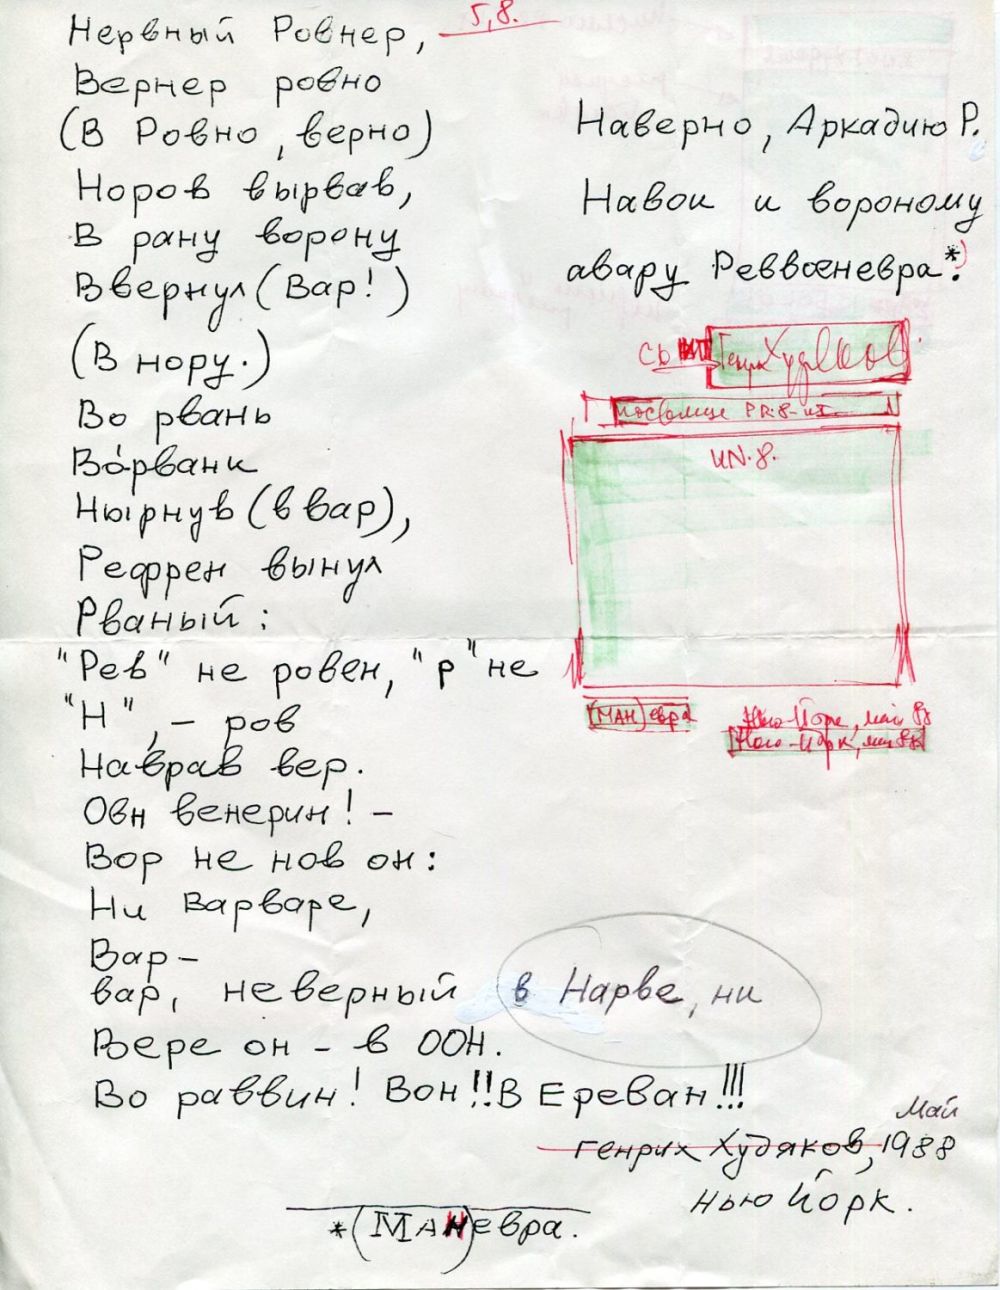 5,8.
Нервный Ровнер,
Вернер ровно
(В Ровно, верно)
Норов вырвав,
В рану ворону
Ввернул (Вар!)
(В нору.)
Во рвань
Во́рвани
Нырнув (в вар),
Рефрен вынул
Рваный:
"Рев" не ровен, "р" не
"Н", – ров
Наврав вер.
Овн венерин! –
Вор не нов он:
Ни Варваре,
Вар–
вар, неверный в Нарве, ни
Вере он – в ООН.
Во раввин! Вон!! В Ереван!!!
Наверно, Аркадию Р.
Навои и вороному
авару Реввоеневра*).
Генрих Худяков
UN.8.
(МАН)евра
Нью-Йорк, май 88
[Нью-Йорк, май 88]
Май
Генрих Худяков, 1988
Нью Йорк.
*(МАН)евра.